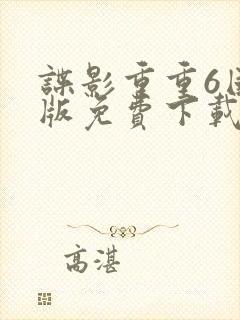 諜影重重6
版免費下載
高湛